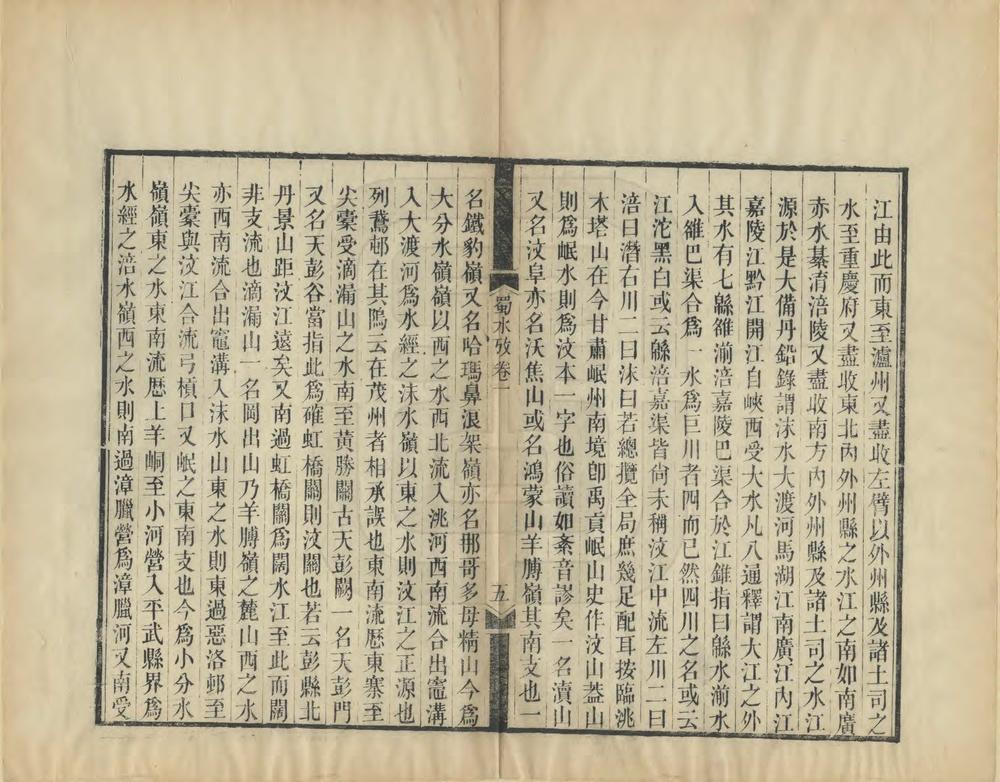 江由此而東至瀘州又盡收左臂以外州縣及諸土司之
水至重慶府又盡收東北內外州縣之水江之南如南廣
赤水綦淯涪陵又盡收南方內外州縣及諸土司之水江
源於是大備丹鉛錄謂沫水大渡河馬湖江南廣江內江
嘉陵江黔江開江自峽西受大水凡八通釋謂大江之外
其水有七緜雒湔涪嘉陵巴渠合於江錐指曰緜水湔水
入雒巴渠合爲一水爲巨川者四而已然四川之名或云
江沱黑白或云緜涪嘉渠皆尙未稱汶江中流左川二曰
涪曰潛右川二曰沫曰若總攬全局庶幾足配耳按臨洮
木塔山在今甘肅岷州南境卽禹貢岷山史作汶山蓋山
則爲岷水則爲汶本一字也俗讀如紊音謬矣一名瀆山
又名汶阜亦名沃焦山或名鴻蒙山羊膊嶺其南支也一
蜀水攷卷一
五
名鐵豹嶺又名哈瑪鼻浪架嶺亦名那哥多母精山今爲
大分水嶺嶺以西之水西北流入洮河西南流合出竈溝
入大渡河爲水經之沫水嶺以東之水則汶江之正源也
列鵞邨在其隖云在茂州者相承誤也東南流歷東寨至
尖橐受滴漏山之水南至黃勝關古天彭闕一名天彭門
又名天彭谷當指此爲確虹橋關則汶關也若云彭縣北
丹景山距汶江遠矣又南過虹橋關爲闊水江至此而闊
非支流也滴漏山一名岡出山乃羊膊嶺之麓山西之水
亦西南流合出竈溝入沫水山東之水則東過惡洛邨至
尖橐與汶江合流弓槓口又岷之東南支也今爲小分水
嶺嶺東之水東南流歷上羊峒至小河營入平武縣界爲
水經之涪水嶺西之水則南過漳臘營爲漳臘河又南受